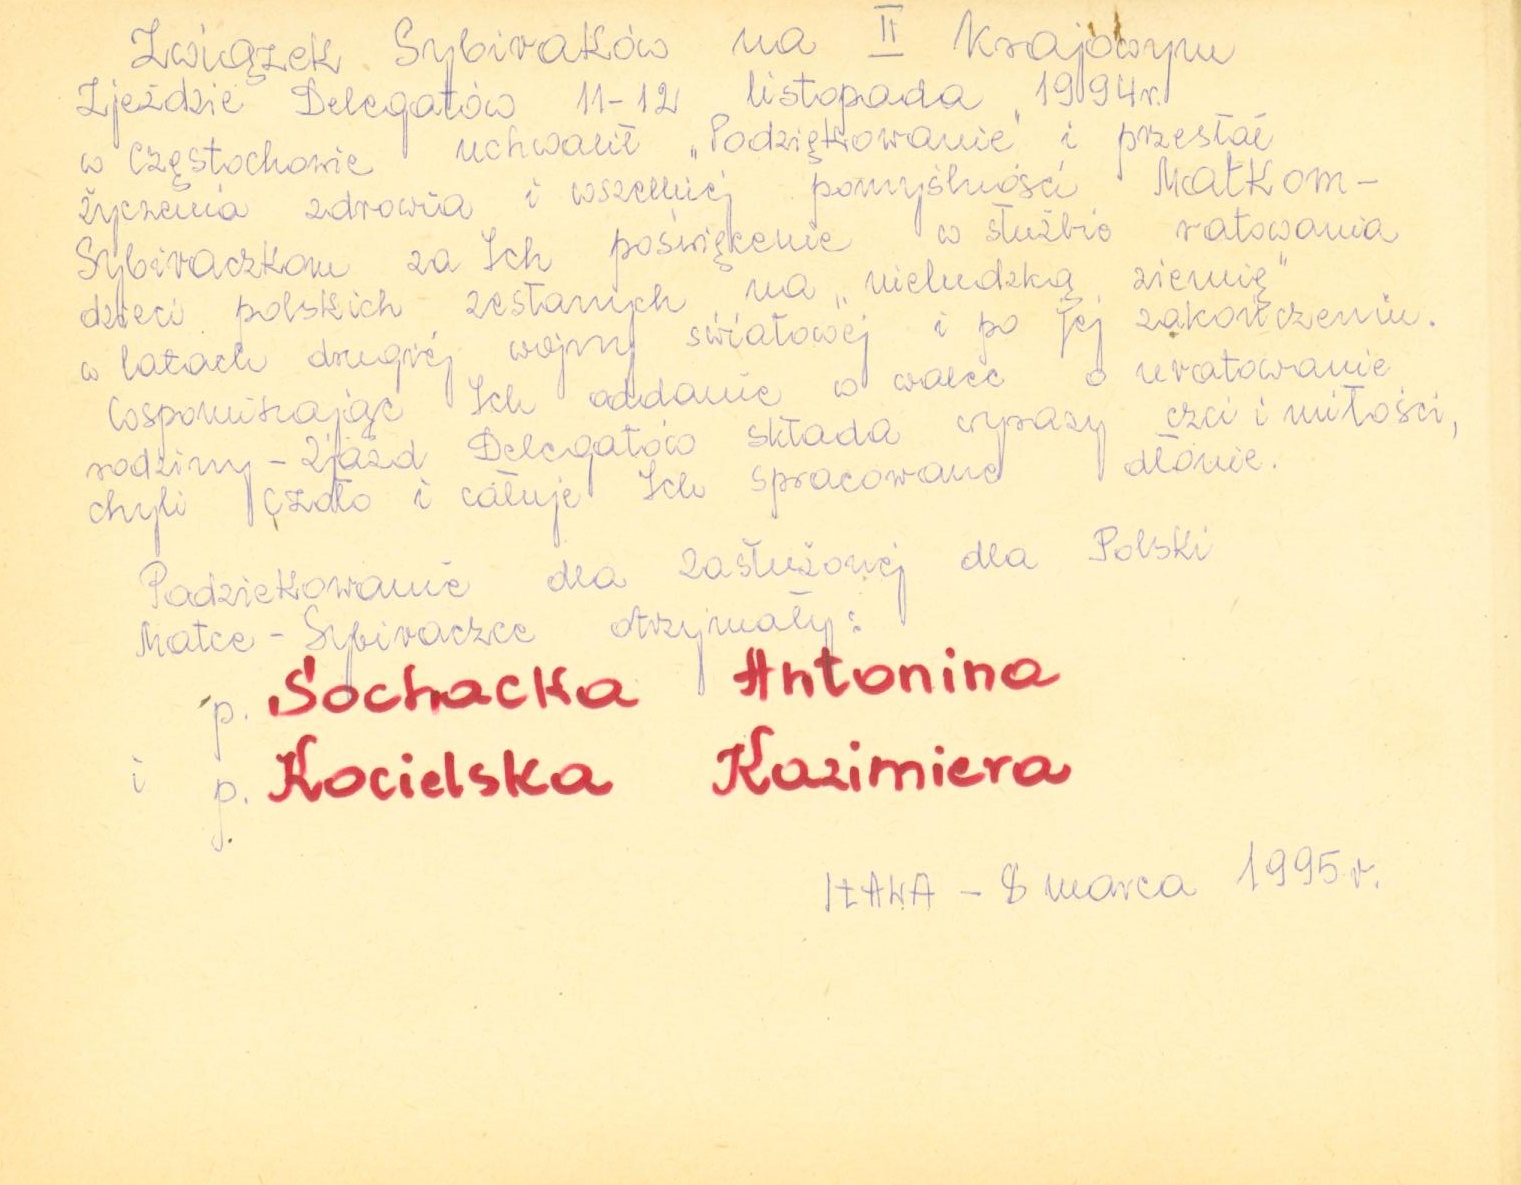 Związek Sybiraków na II Krajowym
Zjeździe Delegatów 11-12 listopada 1994r.
w Częstochowie uchwalił „Podziękowanie" i przesłał
życzenia zdrowia i wszelkiej pomyślności Matkom-
Sybiraczkom za Ich poświęcenie w służbie ratowania
dzieci polskich zesłanych na „nieludzką ziemię"
w latach drugiej wojny światowej i po jej zakończeniu.
Wspominając Ich oddanie w walce o uratowanie
rodziny - Zjazd Delegatów składa wyrazy czci i miłości,
chyli czoło i całuje Ich spracowane dłonie.
Podziękowanie dla Zasłużonej dla Polski
Matce - Sybiraczce otrzymały:
p. Sochacka Antonina
i p. Kocielska Kazimiera
IŁAWA - 8 marca 1995 r.